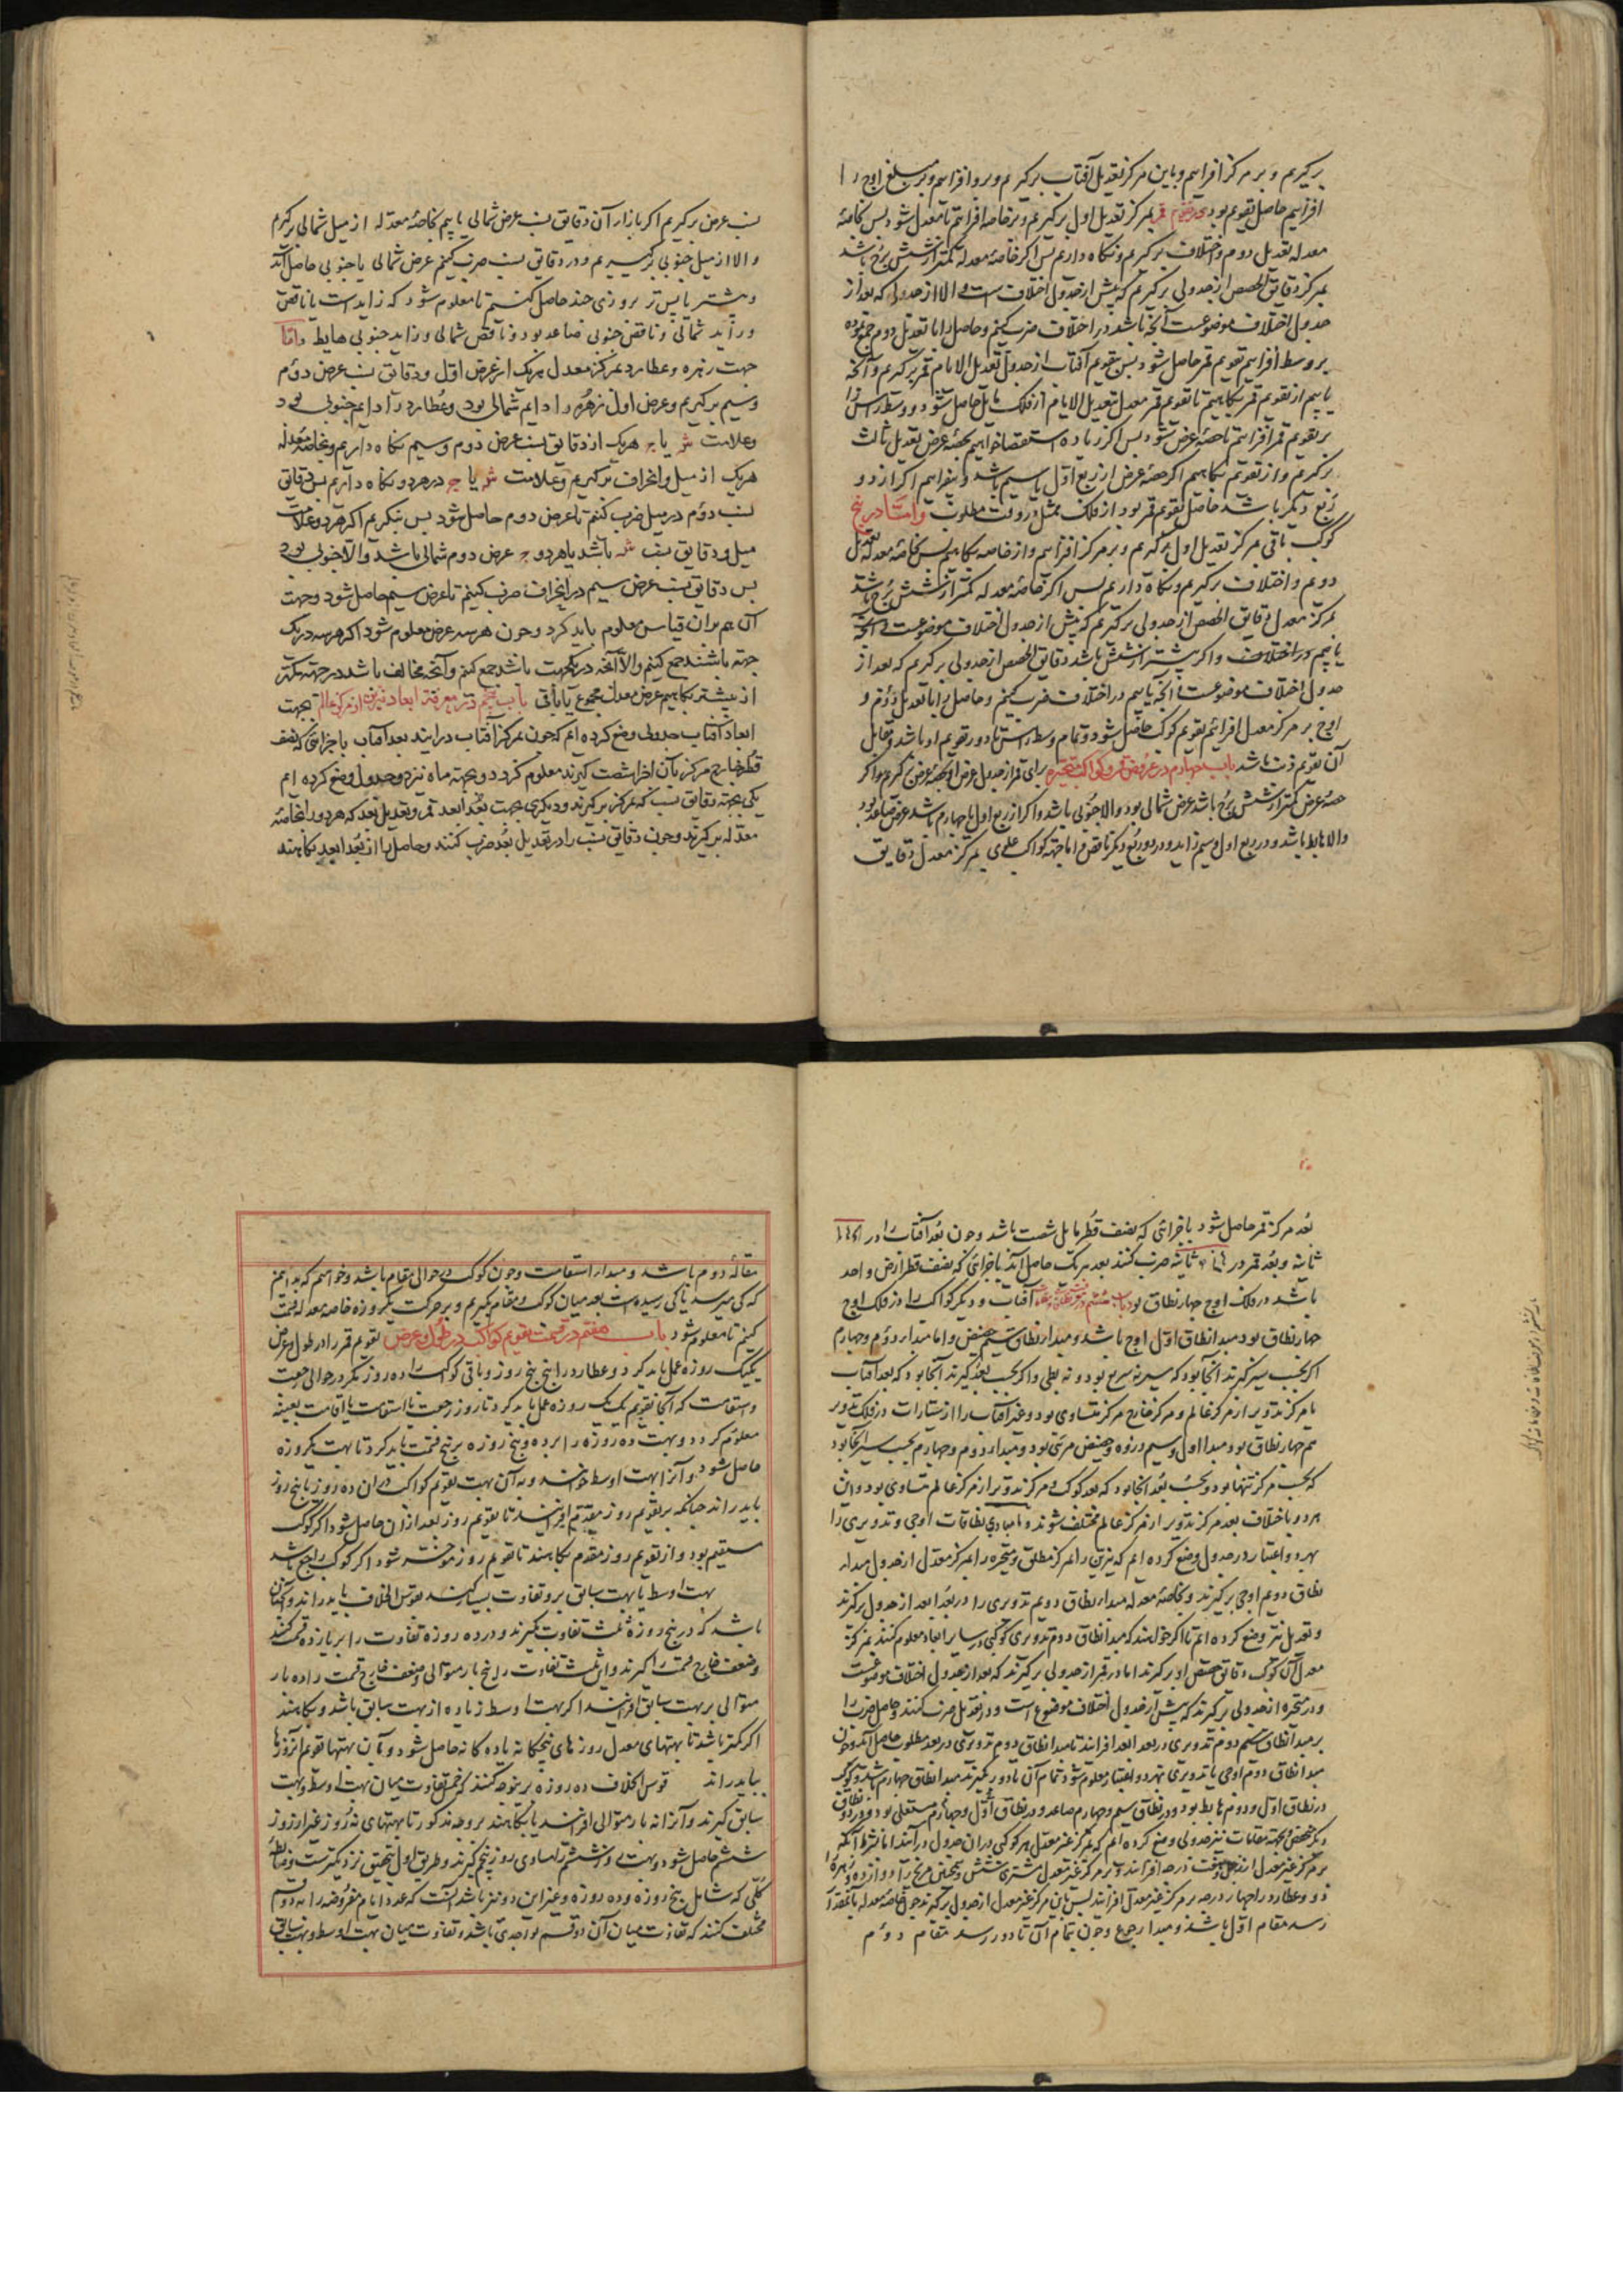 برکیریم و بر مرکز افزاییم و باین مرکز تعدیل آفتاب برکیریم و برو افزاییم و بر مبلغ اوج را
افزاییم حاصل تقویم بود و در تقویم قمر بمرکز تعدیل اول برکیریم و بر خاصه افزاییم تا معدل شود پس بخاصهٔ
معدله تعدیل دوم و اختلاف برکیریم و نکاه داریم پس اکر خاصهٔ معدله کمتر از شش برج باشد
بمرکز دقایق الحصص از جدولی برکیریم که پیش از جدول اختلاف است و الا از جدولی که بعد از
جدول اختلاف موضوعست آنچه باشد در اختلاف ضرب کنیم و حاصل را با تعدیل دوم جمع نموده
بر وسط افزاییم تقویم قمر حاصل شود پس بتقویم آفتاب از جدول تعدیل الایام قمر برکیریم و آنچه
یابیم از تقویم قمر بکاهیم تا تقویم قمر معدل بتعدیل الایام از فلک مایل حاصل شود و وسط راس را
بر تقویم قمر افزاییم تا حصهٔ عرض شود پس اکر زیاده استقصا خواهیم بحصهٔ عرض تعدیل ثالث
برکیریم و از تقویم بکاهیم اکر حصهٔ عرض از ربع اول یا سیم باشد و بیفزاییم اکر از دو
ربع دیکر باشد حاصل تقویم قمر بود از فلک ممثل در وقت مطلوب و امّا در پنج
کوکب باقی بمرکز تعدیل اول برکیریم و بر مرکز افزاییم و از خاصه بکاهیم پس بخاصهٔ معدله تعدیل
دوم و اختلاف برکیریم و نکاه داریم پس اکر خاصهٔ معدله کمتر از شش برج باشد
بمرکز معدل دقایق الحصص از جدولی برکیریم که پیش از جدول اختلاف موضوعست و آنچه
یابیم در اختلاف و اکر بیشتر از شش باشد دقایق الحصص از جدولی برکیریم که بعد از
جدول اختلاف موضوعست آنچه یابیم در اختلاف ضرب کنیم و حاصل را با تعدیل دوم و
اوج بر مرکز معدل افزاییم تقویم کوکب حاصل شود و تمام وسط راس تا دور تقویم او باشد و مقابل
آن تقویم ذنب باشد باب چهارم در عروض قمر و کواکب متحیره برای قمر از جدول عرض او بحصهٔ عرض برکیریم و اکر
حصهٔ عرض کمتر از شش برج باشد عرض شمالی بود و الا جنوبی باشد و اکر از ربع اول یا چهارم باشد عرض صاعد بود
والا هابط باشد و در ربع اول و سیم زاید و در دو ربع دیکر ناقص و اما جهة کواکب علوی بمرکز معدل دقایق
نسب عرض برکیریم اکر بازاء آن دقایق نسب عرض شمالی یابیم بخاصهٔ معدله از میل شمالی برکیریم
والا از میل جنوبی برکیریم و در دقایق نسب ضرب کنیم عرض شمالی یا جنوبی حاصل آید
و پیشتر یا پس تر بروزی چند حاصل کنیم تا معلوم شود که زایدست یا ناقص
و زاید شمالی و ناقص جنوبی صاعد بود و ناقص شمالی و زاید جنوبی هابط و امّا
جهت زهره و عطارد بمرکز معدل هریک از عرض اول و دقایق نسب عرض دوم
وسیم برکیریم و عرض اول زهره را دایم شمالی بود و عطارد را دایم جنوبی بود
وعلامت شه یا جه هریک از دقایق نسب عرض دوم وسیم نکاه داریم و بخاصهٔ معدله
هریک از میل و انحراف برکیریم وعلامت شه یا جه در هر دو نکاه داریم پس دقایق
نسب دوم در میل ضرب کنیم تا عرض دوم حاصل شود پس بنکریم اکر هر دو علامت
میل و دقایق نسب شه باشد یا هر دو جه عرض دوم شمالی باشد و الا جنوبی بود
پس دقایق نسب عرض سیم در انحراف ضرب کنیم تا عرض سیم حاصل شود و جهت
آن هم بران قیاس معلوم باید کرد و چون هر سه عرض معلوم شود اکر هر سه در یک
جهة باشند جمع کنیم والا آنچه در یک جهت باشد جمع کنیم و آنچه مخالف باشد در جهة کمتر
از بیشتر بکاهیم عرض معدل مجموع یا باقی باب پنجم در معرفة ابعاد نیرین از مرکز عالم بجهت
ابعاد آفتاب جدولی وضع کرده ایم که چون بمرکز آفتاب درایند بعد آفتاب باجزائی که نصف
قطر خارج مرکز بآن اجزا شصت کیرند معلوم کردد و بجهة ماه نیز دو جدول وضع کرده ایم
یکی بجهة دقایق نسب که بمرکز برکیرند و دیکری جهت بعد ابعد قمر و تعدیل بعد که هر دو را بخاصهٔ
معدله برکیرند و چون دقایق نسب را در تعدیل بعد ضرب کنند و حاصل را از بعد ابعد بکاهند
بعد مرکز قمر حاصل شود باجزائی که نصف قطر مایل شصت باشد و چون بعد آفتاب را در
ثانیه و بعد قمر در ثانیه ضرب کنند بعد هریک حاصل آید باجزائی که نصف قطر ارض واحد
باشد در فلک اوج چهار نطاق بود باب ششم آفتاب و دیکر کواکب را در فلک اوج
چهار نطاق بود مبدا نطاق اول اوج باشد و مبداء نطاق سیم حضیض و اما مبداء دوم و چهارم
اکر بحسب سیر کیرند آنجا بود که سیر نه سریع بود و نه بطی و اکر بحسب بعد کیرند آنجا بود که بعد آفتاب
یا مرکز تدویر از مرکز عالم و مرکز خارج مرکز متساوی بود و غیر آفتاب را از سیارات در فلک تدویر
هم چهار نطاق بود مبدا اول وسیم ذروه و حضیض مرئی بود و مبداء دوم و چهارم بحسب سیر آنجا بود
که بحسب مرکز تنها بود و بحسب بعد آنجا بود که بعد کوکب و مرکز تدویر از مرکز عالم متساوی بود و ان
هر دو باختلاف بعد مرکز تدویر از مرکز عالم مختلف شوند و ما مبادی نطاقات اوجی و تدویری را
بهر دو اعتبار در جدول وضع کرده ایم که نیرین را بمرکز مطلق و متحیره را بمرکز معدل از جدول مبداء
نطاق دویم اوجی برکیرند و بخاصهٔ معدله مبداء نطاق دویم تدویری را در بعد ابعد از جدول برکیرند
و تعدیل نیز وضع کرده ایم تا اکر خواهند که مبدا نطاق دوم تدویری کوکبی در سایر ابعاد معلوم کنند بمرکز
معدل آن کوکب دقایق حصص او برکیرند اما در قمر از جدولی برکیرند که بعد از جدول اختلاف موضوعست
و در متحیره از جدولی برکیرند که پیش از جدول اختلاف موضوع است و در تعدیل ضرب کنند و حاصل ضرب را
بر مبدا نطاق دوم تدویری در بعد ابعد افزایند تا مبدا نطاق دوم تدویری در بعد مطلوب حاصل آید و چون
مبدا نطاق دوم اوجی یا تدویری بهر دو اعتبار معلوم شود تمام آن تا دور کیرند مبدا نطاق چهارم باشد و کوکب
در نطاق اول و دوم هابط بود و در نطاق سیم و چهارم صاعد و در نطاق اول و چهارم مستعلی بود و در دو نطاق
دیکر منخفض و بجهة مقامات نیز جدولی وضع کرده ایم که بمرکز غیر معدل هر کوکبی در ان جدول درآیند اما بشرط آنکه
بر مرکز غیر معدل از زحل هفت درجه افزایند و بر مرکز غیر معدل مشتری شش و همچنین مریخ را دوازده و زهره را
دو و عطارد را چهار درجه بر مرکز غیر معدل افزایند پس باین مرکز غیر معدل از جدول برکیرند چون خاصه معدله بآنمقدار
رسد مقام اول باشد و مبداء رجوع و چون بتمام آن تا دور رسد مقام دوم
مقالهٔ دوم باشد و مبداء استقامت و چون کوکب در حوالی مقام باشد و خواهیم که بدانیم
که کی میرسد یا کی رسیده است بعد میان کوکب و مقام بکیریم و بر حرکت یکروزه خاصه معدله قسمت
کنیم تا معلوم شود باب هفتم در قسمت تقویم کواکب در طول و عرض تقویم قمر را در طول و عرض
یکیک روزه عمل باید کرد و عطارد را پنج پنج روز و باقی کواکب را ده روز مکر در حوالی رجعت
و استقامت که آنجا تقویم یک یک روزه عمل باید کرد تا روز رجعت یا استقامت یا اقامت بعینه
معلوم کردد و بهت ده روزه را بر ده و پنج روزه بر پنج قسمت باید کرد تا بهت یکروزه
حاصل شود و آنرا بهت اوسط خوانند و به آن بهت تقویم کواکب در ان ده روز یا پنج روز
باید راند چنانکه بر تقویم روز مقدم افزایند تا تقویم روز بعد از ان حاصل شود اکر کوکب
مستقیم بود و از تقویم روز مقدم بکاهند تا تقویم روز موخر شود اکر کوکب راجع باشد
بهت اوسط یا بهت سابق بر و تفاوت بسیار کند بقوس الخلاف باید راند و آنچنان
باشد که در پنج روزه ثلث تفاوت بکیرند و در ده روزه تفاوت را بر یازده قسمت کنند
و ضعف خارج قسمت را بکیرند و این ثلث تفاوت را پنج بار متوالی و ضعف خارج قسمت را ده بار
متوالی بر بهت سابق افزایند اکر بهت اوسط زیاده از بهت سابق باشد و بکاهند
اکر کمتر باشد تا بهتهای معدل روزهای پنجکانه یا ده کانه حاصل شود و بآن بهتها تقویم آنروزها
بباید راند قوس الخلاف ده روزه برینوجه کنند که خمس تفاوت میان بهت اوسط و بهت
سابق کیرند و آنرا نه بار متوالی افزایند یا بکاهند بر وجه مذکور تا بهتهای نه روز غیر از روز
ششم حاصل شود و بهت روز ششم را مساوی روز پنجم کیرند و طریق اول بتحقیق نزدیکترست و ضابطهٔ
کلی که شامل پنج روزه و ده روزه و غیر این دو نیز باشد آنست که عدد ایام مفروضه را به دو قسم
مختلف کنند که تفاوت میان آن دو قسم بواحدی باشد و تفاوت میان بهت اوسط و بهت سابق